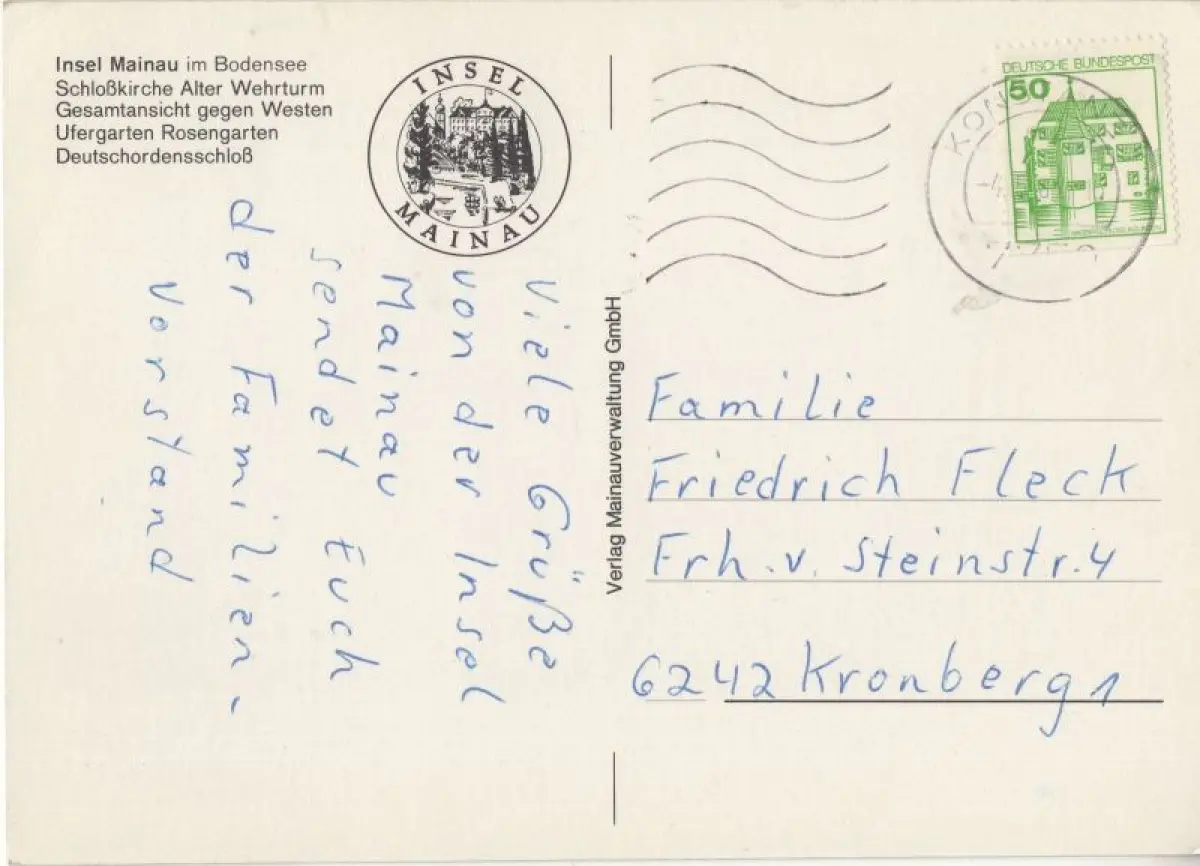 Insel Mainau im Bodensee
Schloßkirche Alter Wehrturm
Gesamtansicht gegen Westen
Ufergarten Rosengarten
Deutschordensschloß
INSEL
MAINAU
DEUTSCHE BUNDESPOST
50
Viele Grüße
von der Insel
Mainau
sendet Euch
der Familien-
Vorstand
Verlag Mainauverwaltung GmbH
Familie
Friedrich Fleck
Frh. v. Steinstr. 4
6242 Kronberg 1